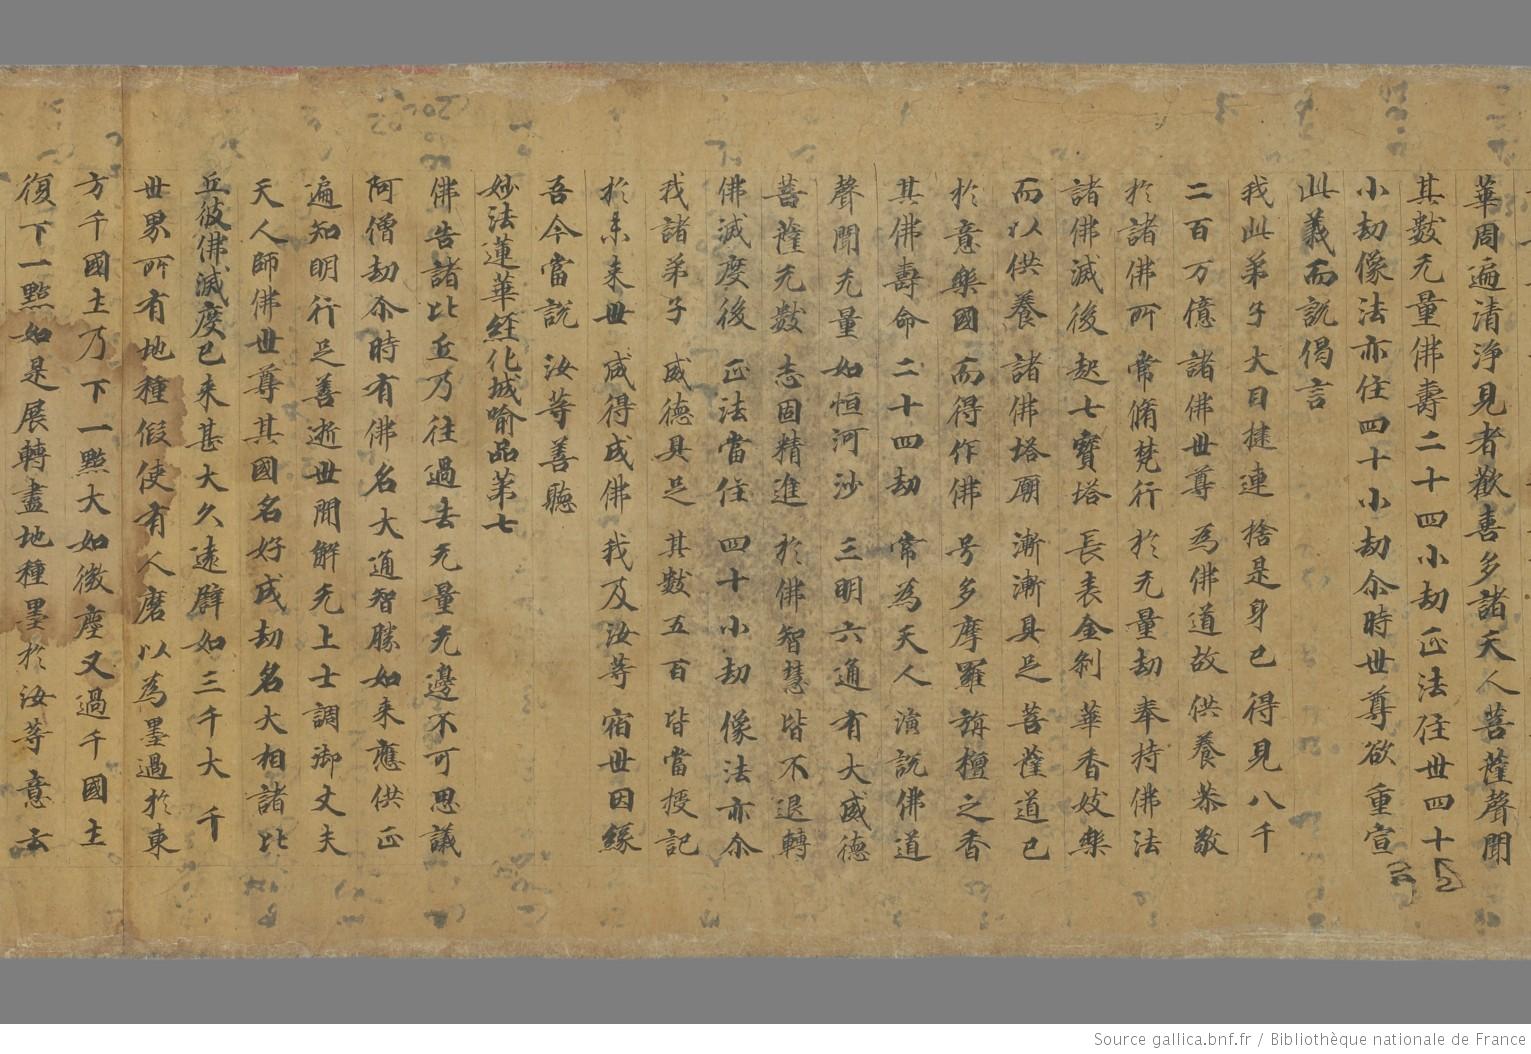 華周遍清淨見者歡喜多諸天人菩薩聲聞
其數无量佛壽二十四小劫正法住世四十
小劫像法亦住四十小劫尒時世尊欲重宣
此義而說偈言
我此弟子 大目揵連 捨是身已 得見八千
二百万億 諸佛世尊 為佛道故 供養恭敬
於諸佛所 常脩梵行 於无量劫 奉持佛法
諸佛滅後 起七寶塔 長表金刹 華香妓樂
而以供養 諸佛塔廟 漸漸具足 菩薩道已
於意樂國 而得作佛 号多摩羅 旃檀之香
其佛壽命 二十四劫 常為天人 演說佛道
聲聞无量 如恒河沙 三明六通 有大威德
菩薩无數 志固精進 於佛智慧 皆不退轉
佛滅度後 正法當住 四十小劫 像法亦尒
我諸弟子 威德具足 其數五百 皆當授記
於未来世 咸得成佛 我及汝等 宿世因緣
吾今當說 汝等善聽
妙法蓮華經化城喻品第七
佛告諸比丘乃往過去无量无邊不可思議
阿僧劫尒時有佛名大通智勝如来應供正
遍知明行足善逝世間解无上士調御丈夫
天人師佛世尊其國名好成劫名大相諸比
丘彼佛滅度已来甚大久遠譬如三千大千
世界所有地種假使有人磨以為墨過於東
方千國土乃下一點大如微塵又過千國土
復下一點如是展轉盡地種墨於汝等意云
Source gallica.bnf.fr / Bibliothèque nationale de France